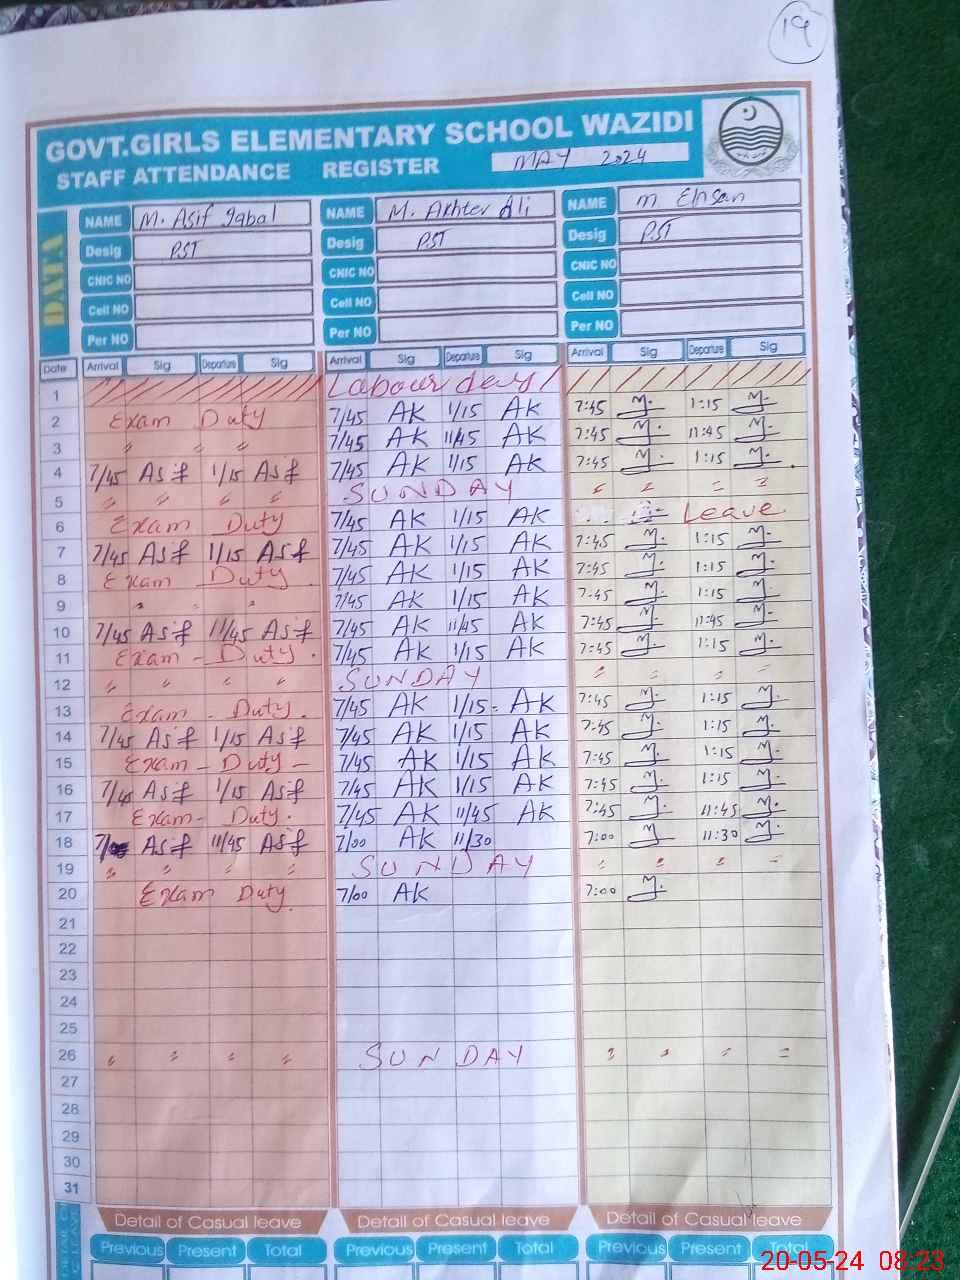 19
GOVT.GIRLS ELEMENTARY SCHOOL WAZIDI
STAFF ATTENDANCE REGISTER MAY 2024
DATA
NAME M. Asif Iqbal NAME M. Akhter Ali NAME M Ehsan
Desig PST Desig PST Desig PST
CNIC NO CNIC NO CNIC NO
Cell NO Cell NO Cell NO
Per NO Per NO Per NO
Date Arrival Sig Departure Sig Arrival Sig Departure Sig Arrival Sig Departure Sig
1 Labour day
2 Exam Duty 7/45 AK 1/15 AK 7:45 M. 1:15 M.
3 " " " 7/45 AK 11/45 AK 7:45 M. 11:45 M.
4 7/45 Asif 1/15 Asif 7/45 AK 1/15 AK 7:45 M. 1:15 M.
5 " " " " SUNDAY " " " "
6 Exam Duty 7/45 AK 1/15 AK Leave
7 7/45 Asif 1/15 Asif 7/45 AK 1/15 AK 7:45 M. 1:15 M.
8 Exam Duty 7/45 AK 1/15 AK 7:45 M. 1:15 M.
9 " " " 7/45 AK 1/15 AK 7:45 M. 1:15 M.
10 7/45 Asif 11/45 Asif 7/45 AK 11/45 AK 7:45 M. 11:45 M.
11 Exam - Duty. 7/45 AK 1/15 AK 7:45 M. 1:15 M.
12 " " " " SUNDAY " " " "
13 Exam - Duty. 7/45 AK 1/15 - AK 7:45 M. 1:15 M.
14 7/45 Asif 1/15 Asif 7/45 AK 1/15 AK 7:45 M. 1:15 M.
15 Exam - Duty - 7/45 AK 1/15 AK 7:45 M. 1:15 M.
16 7/45 Asif 1/15 Asif 7/45 AK 1/15 AK 7:45 M. 1:15 M.
17 Exam - Duty. 7/45 AK 11/45 AK 7:45 M. 11:45 M.
18 Asif 11/45 Asif 7/00 AK 11/30 7:00 M 11:30 M.
19 " " " " SUNDAY " " " "
20 Exam Duty. 7/00 AK 7:00 M.
21
22
23
24
25
26 " " " " SUNDAY " " " "
27
28
29
30
31
Detail of Casual leave Detail of Casual leave Detail of Casual leave
Previous Present Total Previous Present Total Previous Present Total
20-05-24 08:23